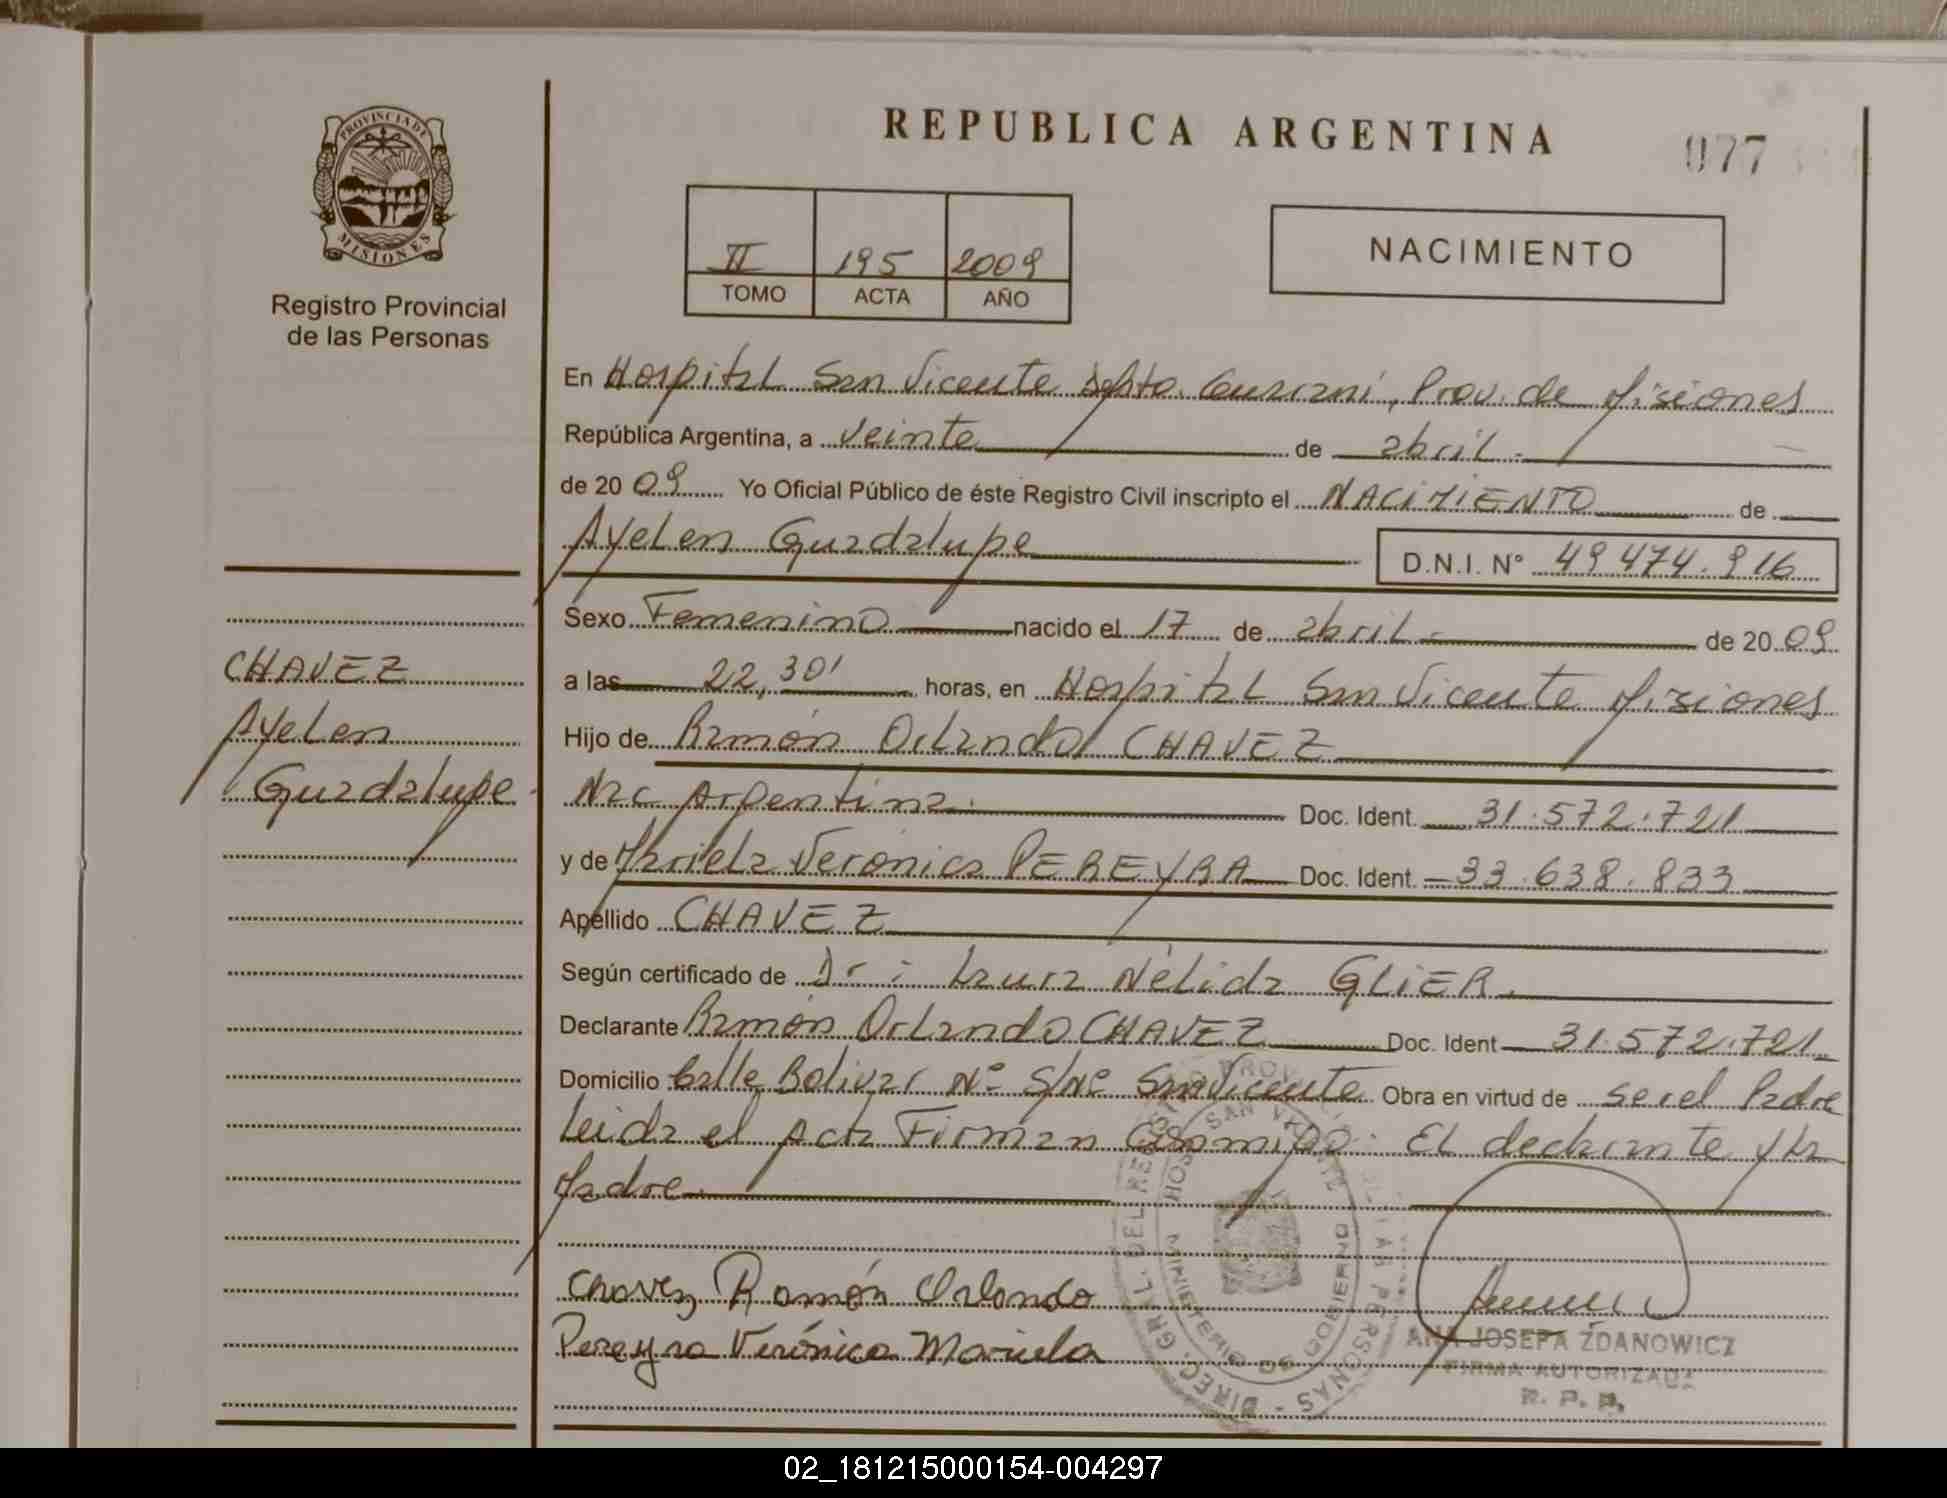 REPUBLICA ARGENTINA
077
PROVINCIA DE
MISIONES
Registro Provincial
de las Personas
II 195 2009
TOMO ACTA AÑO
NACIMIENTO
En Hospital San Vicente Dpto. Guarani, Prov. de Misiones
República Argentina, a veinte de abril.-
de 2009 Yo Oficial Público de éste Registro Civil inscripto el NACIMIENTO de
Ayelen Guadalupe
D.N.I. N° 49 474.916
Sexo Femenino nacido el 17 de abril.- de 2009
a las 22,30' horas, en Hospital San Vicente Misiones
Hijo de Ramón Orlando CHAVEZ
Nac Argentina. Doc. Ident. 31.572.721
y de Mariela Verónica PEREYRA Doc. Ident. 33.638.833
Apellido CHAVEZ
Según certificado de Dr: Laura Nélida GLIER.
Declarante Ramón Orlando CHAVEZ Doc. Ident 31.572.721
Domicilio Calle Bolivar N° S/N° San Vicente Obra en virtud de ser el Padre
Leida el Acta Firman Conmigo: El declarante y la
Madre.
Chavez Ramón Orlando
Pereyra Verónica Mariela
CHAVEZ
Ayelen
Guadalupe
DIREC. GRAL. DEL PERSONAS
HOSP SAN VICENTE
MINISTERIO DE GOBIERNO
ANA JOSEFA ZDANOWICZ
FIRMA AUTORIZADA
R. P. P.
02_181215000154-004297